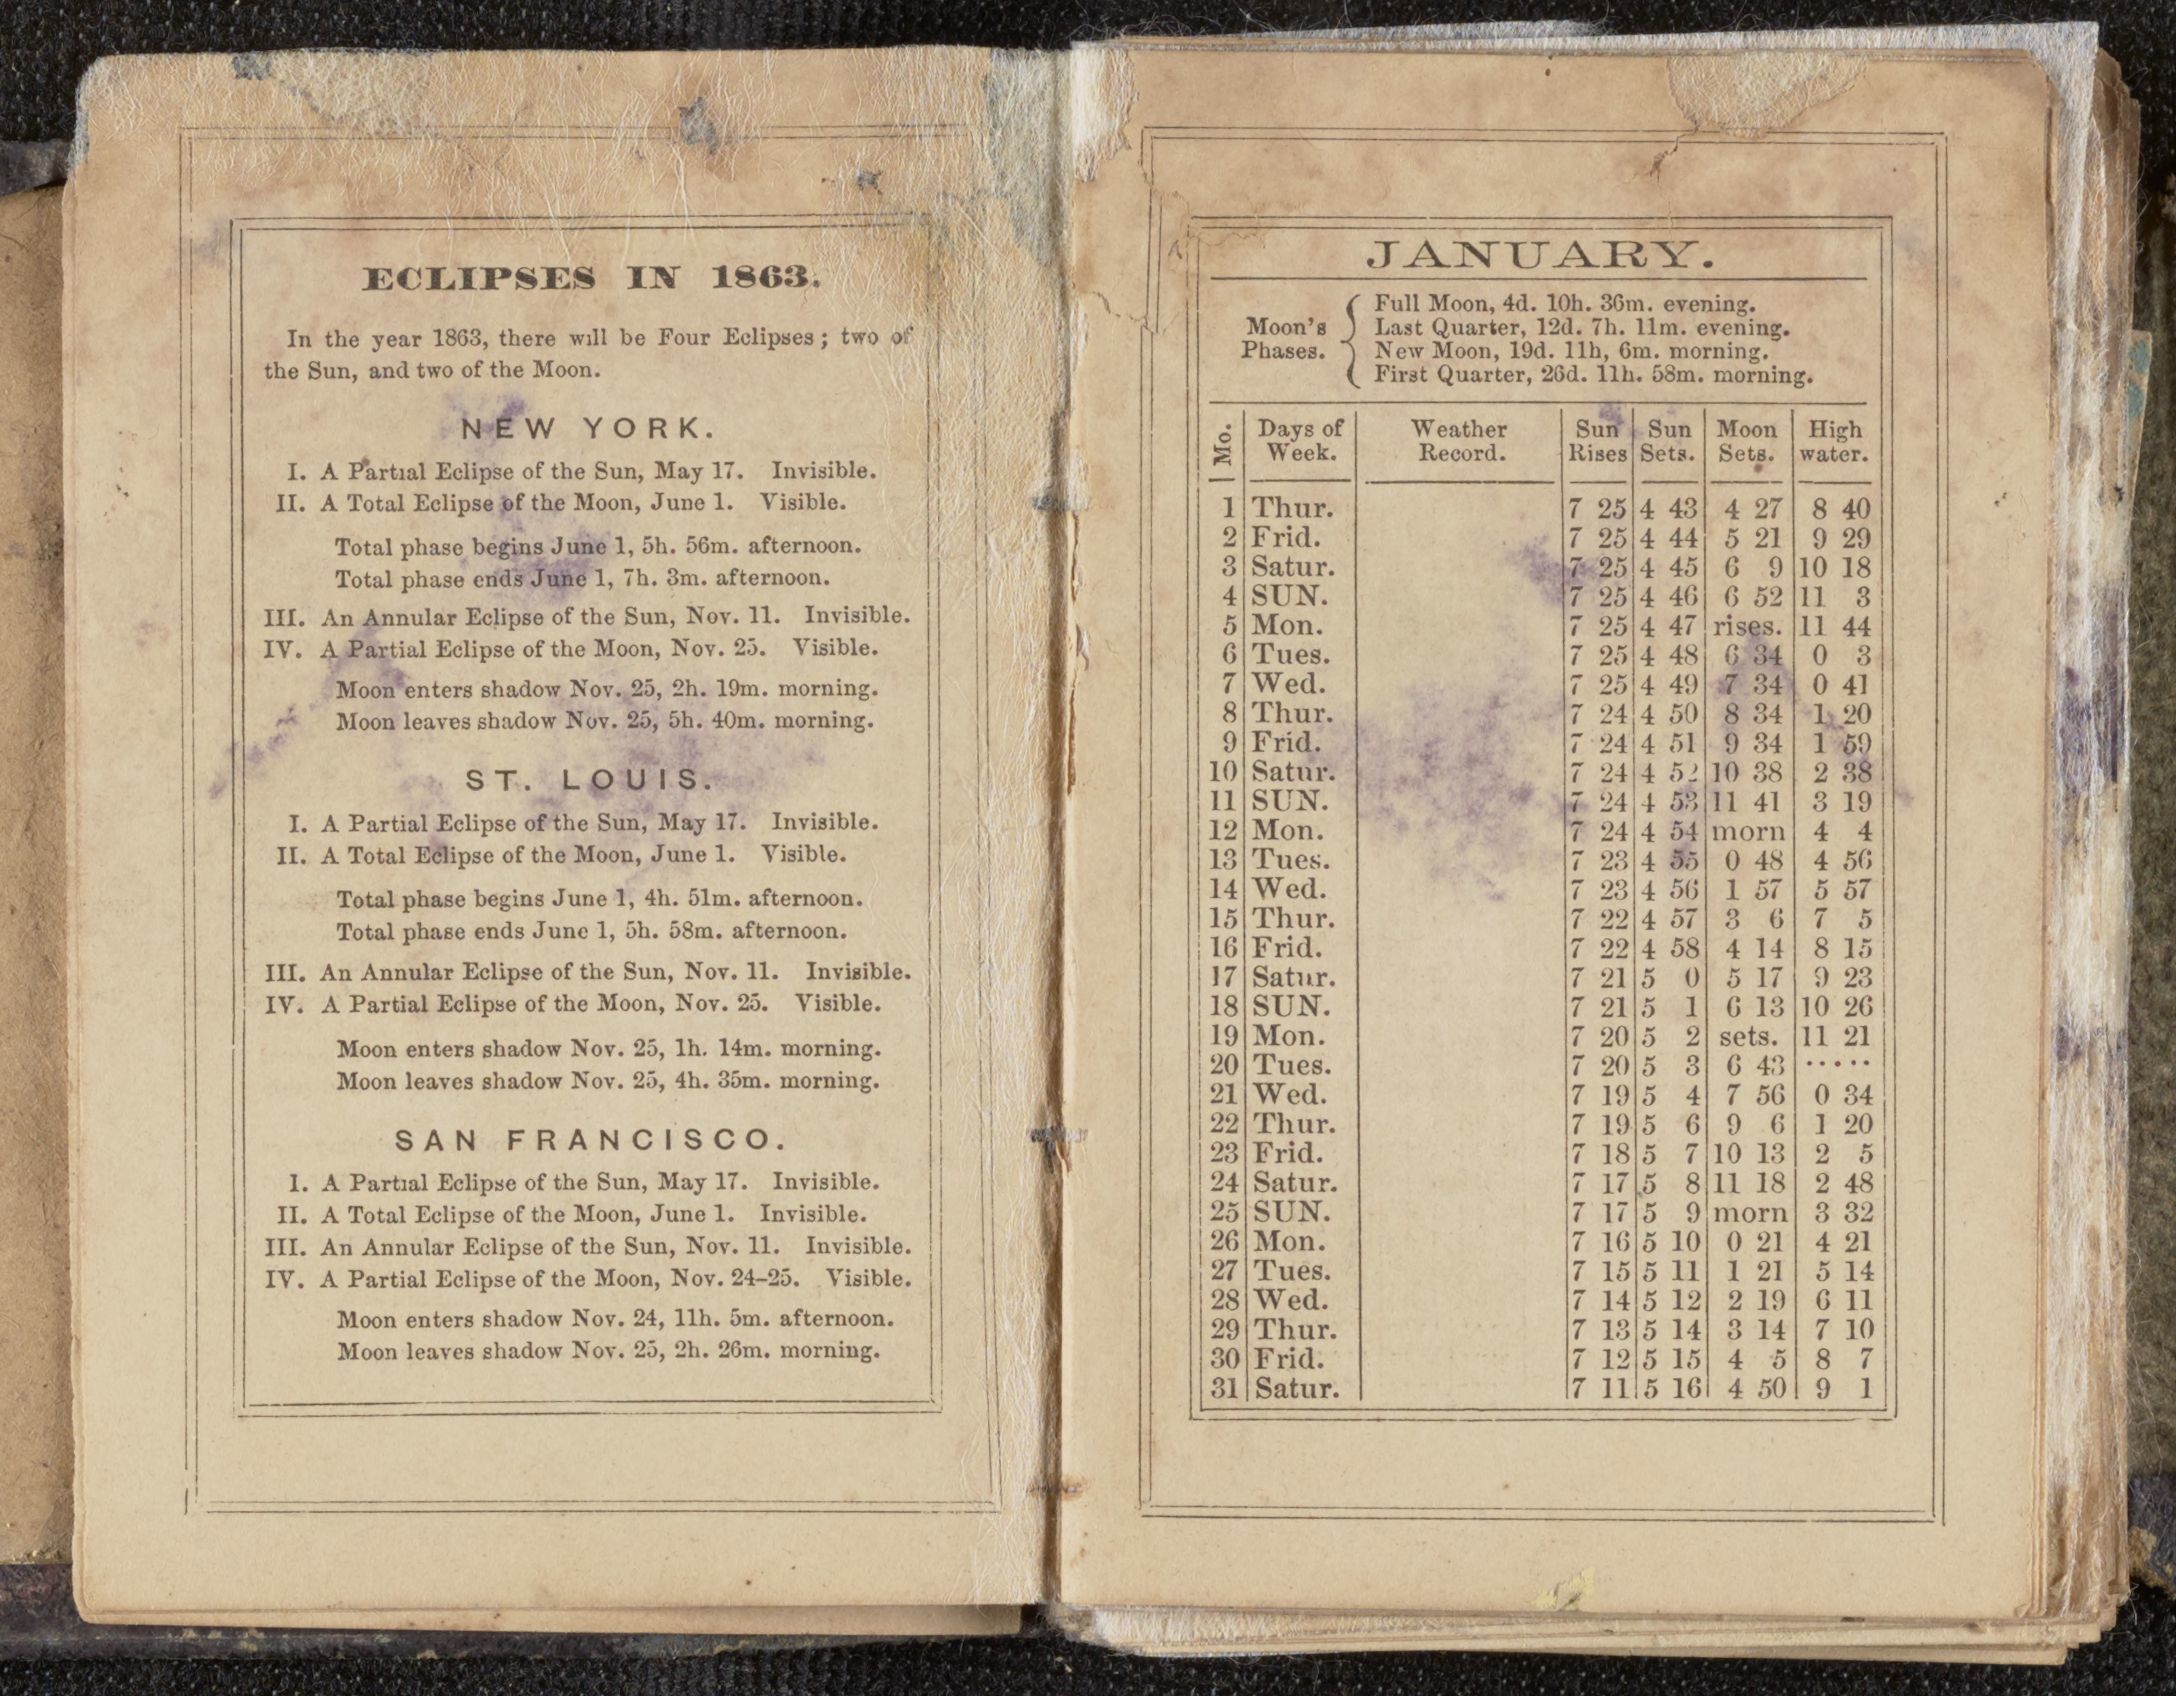 ECLIPSES IN 1863.
In the year 1863, there will be Four Eclipses; two of
the Sun, and two of the Moon.
NEW YORK.
I. A Partial Eclipse of the Sun, May 17. Invisible.
II. A Total Eclipse of the Moon, June 1. Visible.
Total phase begins June 1, 5h. 56m. afternoon.
Total phase ends June 1, 7h. 3m. afternoon.
III. An Annular Eclipse of the Sun, Nov. 11. Invisible.
IV. A Partial Eclipse of the Moon, Nov. 25. Visible.
Moon enters shadow Nov. 25, 2h. 19m. morning.
Moon leaves shadow Nov. 25, 5h. 40m. morning.
ST. LOUIS.
I. A Partial Eclipse of the Sun, May 17. Invisible.
II. A Total Eclipse of the Moon, June 1. Visible.
Total phase begins June 1, 4h. 51m. afternoon.
Total phase ends June 1, 5h. 58m. afternoon.
III. An Annular Eclipse of the Sun, Nov. 11. Invisible.
IV. A Partial Eclipse of the Moon, Nov. 25. Visible.
Moon enters shadow Nov. 25, 1h. 14m. morning.
Moon leaves shadow Nov. 25, 4h. 35m. morning.
SAN FRANCISCO.
I. A Partial Eclipse of the Sun, May 17. Invisible.
II. A Total Eclipse of the Moon, June 1. Invisible.
III. An Annular Eclipse of the Sun, Nov. 11. Invisible.
IV. A Partial Eclipse of the Moon, Nov. 24-25. Visible.
Moon enters shadow Nov. 24, 11h. 5m. afternoon.
Moon leaves shadow Nov. 25, 2h. 26m. morning.
JANUARY.
Moon's Phases.
Full Moon, 4d. 10h. 36m. evening.
Last Quarter, 12d. 7h. 11m. evening.
New Moon, 19d. 11h, 6m. morning.
First Quarter, 26d. 11h. 58m. morning.
Mo. Days of Week. Weather Record. Sun Rises Sun Sets. Moon Sets. High water.
1 Thur. 7 25 4 43 4 27 8 40
2 Frid. 7 25 4 44 5 21 9 29
3 Satur. 7 25 4 45 6 9 10 18
4 SUN. 7 25 4 46 6 52 11 3
5 Mon. 7 25 4 47 rises. 11 44
6 Tues. 7 25 4 48 6 34 0 3
7 Wed. 7 25 4 49 7 34 0 41
8 Thur. 7 24 4 50 8 34 1 20
9 Frid. 7 24 4 51 9 34 1 59
10 Satur. 7 24 4 52 10 38 2 38
11 SUN. 7 24 4 53 11 41 3 19
12 Mon. 7 24 4 54 morn 4 4
13 Tues. 7 23 4 55 0 48 4 56
14 Wed. 7 23 4 56 1 57 5 57
15 Thur. 7 22 4 57 3 6 7 5
16 Frid. 7 22 4 58 4 14 8 15
17 Satur. 7 21 5 0 5 17 9 23
18 SUN. 7 21 5 1 6 13 10 26
19 Mon. 7 20 5 2 sets. 11 21
20 Tues. 7 20 5 3 6 43 .....
21 Wed. 7 19 5 4 7 56 0 34
22 Thur. 7 19 5 6 9 6 1 20
23 Frid. 7 18 5 7 10 13 2 5
24 Satur. 7 17 5 8 11 18 2 48
25 SUN. 7 17 5 9 morn 3 32
26 Mon. 7 16 5 10 0 21 4 21
27 Tues. 7 15 5 11 1 21 5 14
28 Wed. 7 14 5 12 2 19 6 11
29 Thur. 7 13 5 14 3 14 7 10
30 Frid. 7 12 5 15 4 5 8 7
31 Satur. 7 11 5 16 4 50 9 1